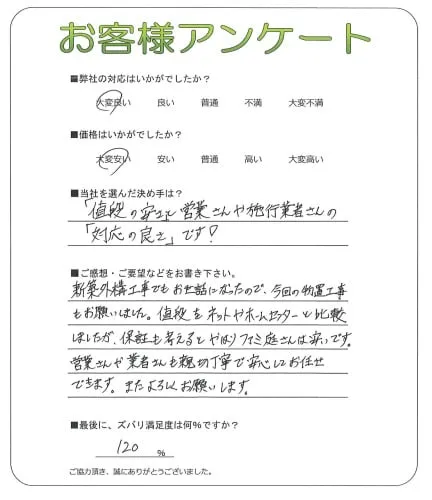 お客様アンケート
■弊社の対応はいかがでしたか？
大変良い 良い 普通 不満 大変不満
■価格はいかがでしたか？
大変安い 安い 普通 高い 大変高い
■当社を選んだ決め手は？
「値段の安さと営業さんや施行業者さんの
「対応の良さ」です！
■ご感想・ご要望などをお書き下さい。
新築外構工事でもお世話になったので、今回の物置工事
もお願いしました。値段をネットやホームセンターと比較
しましたが、保証も考えるとやはりファミ庭さんは安いです。
営業さんや業者さんも親切丁寧で安心してお任せ
できます。またよろしくお願いします。
■最後に、ズバリ満足度は何％ですか？
120 ％
ご協力頂き、誠にありがとうございました。